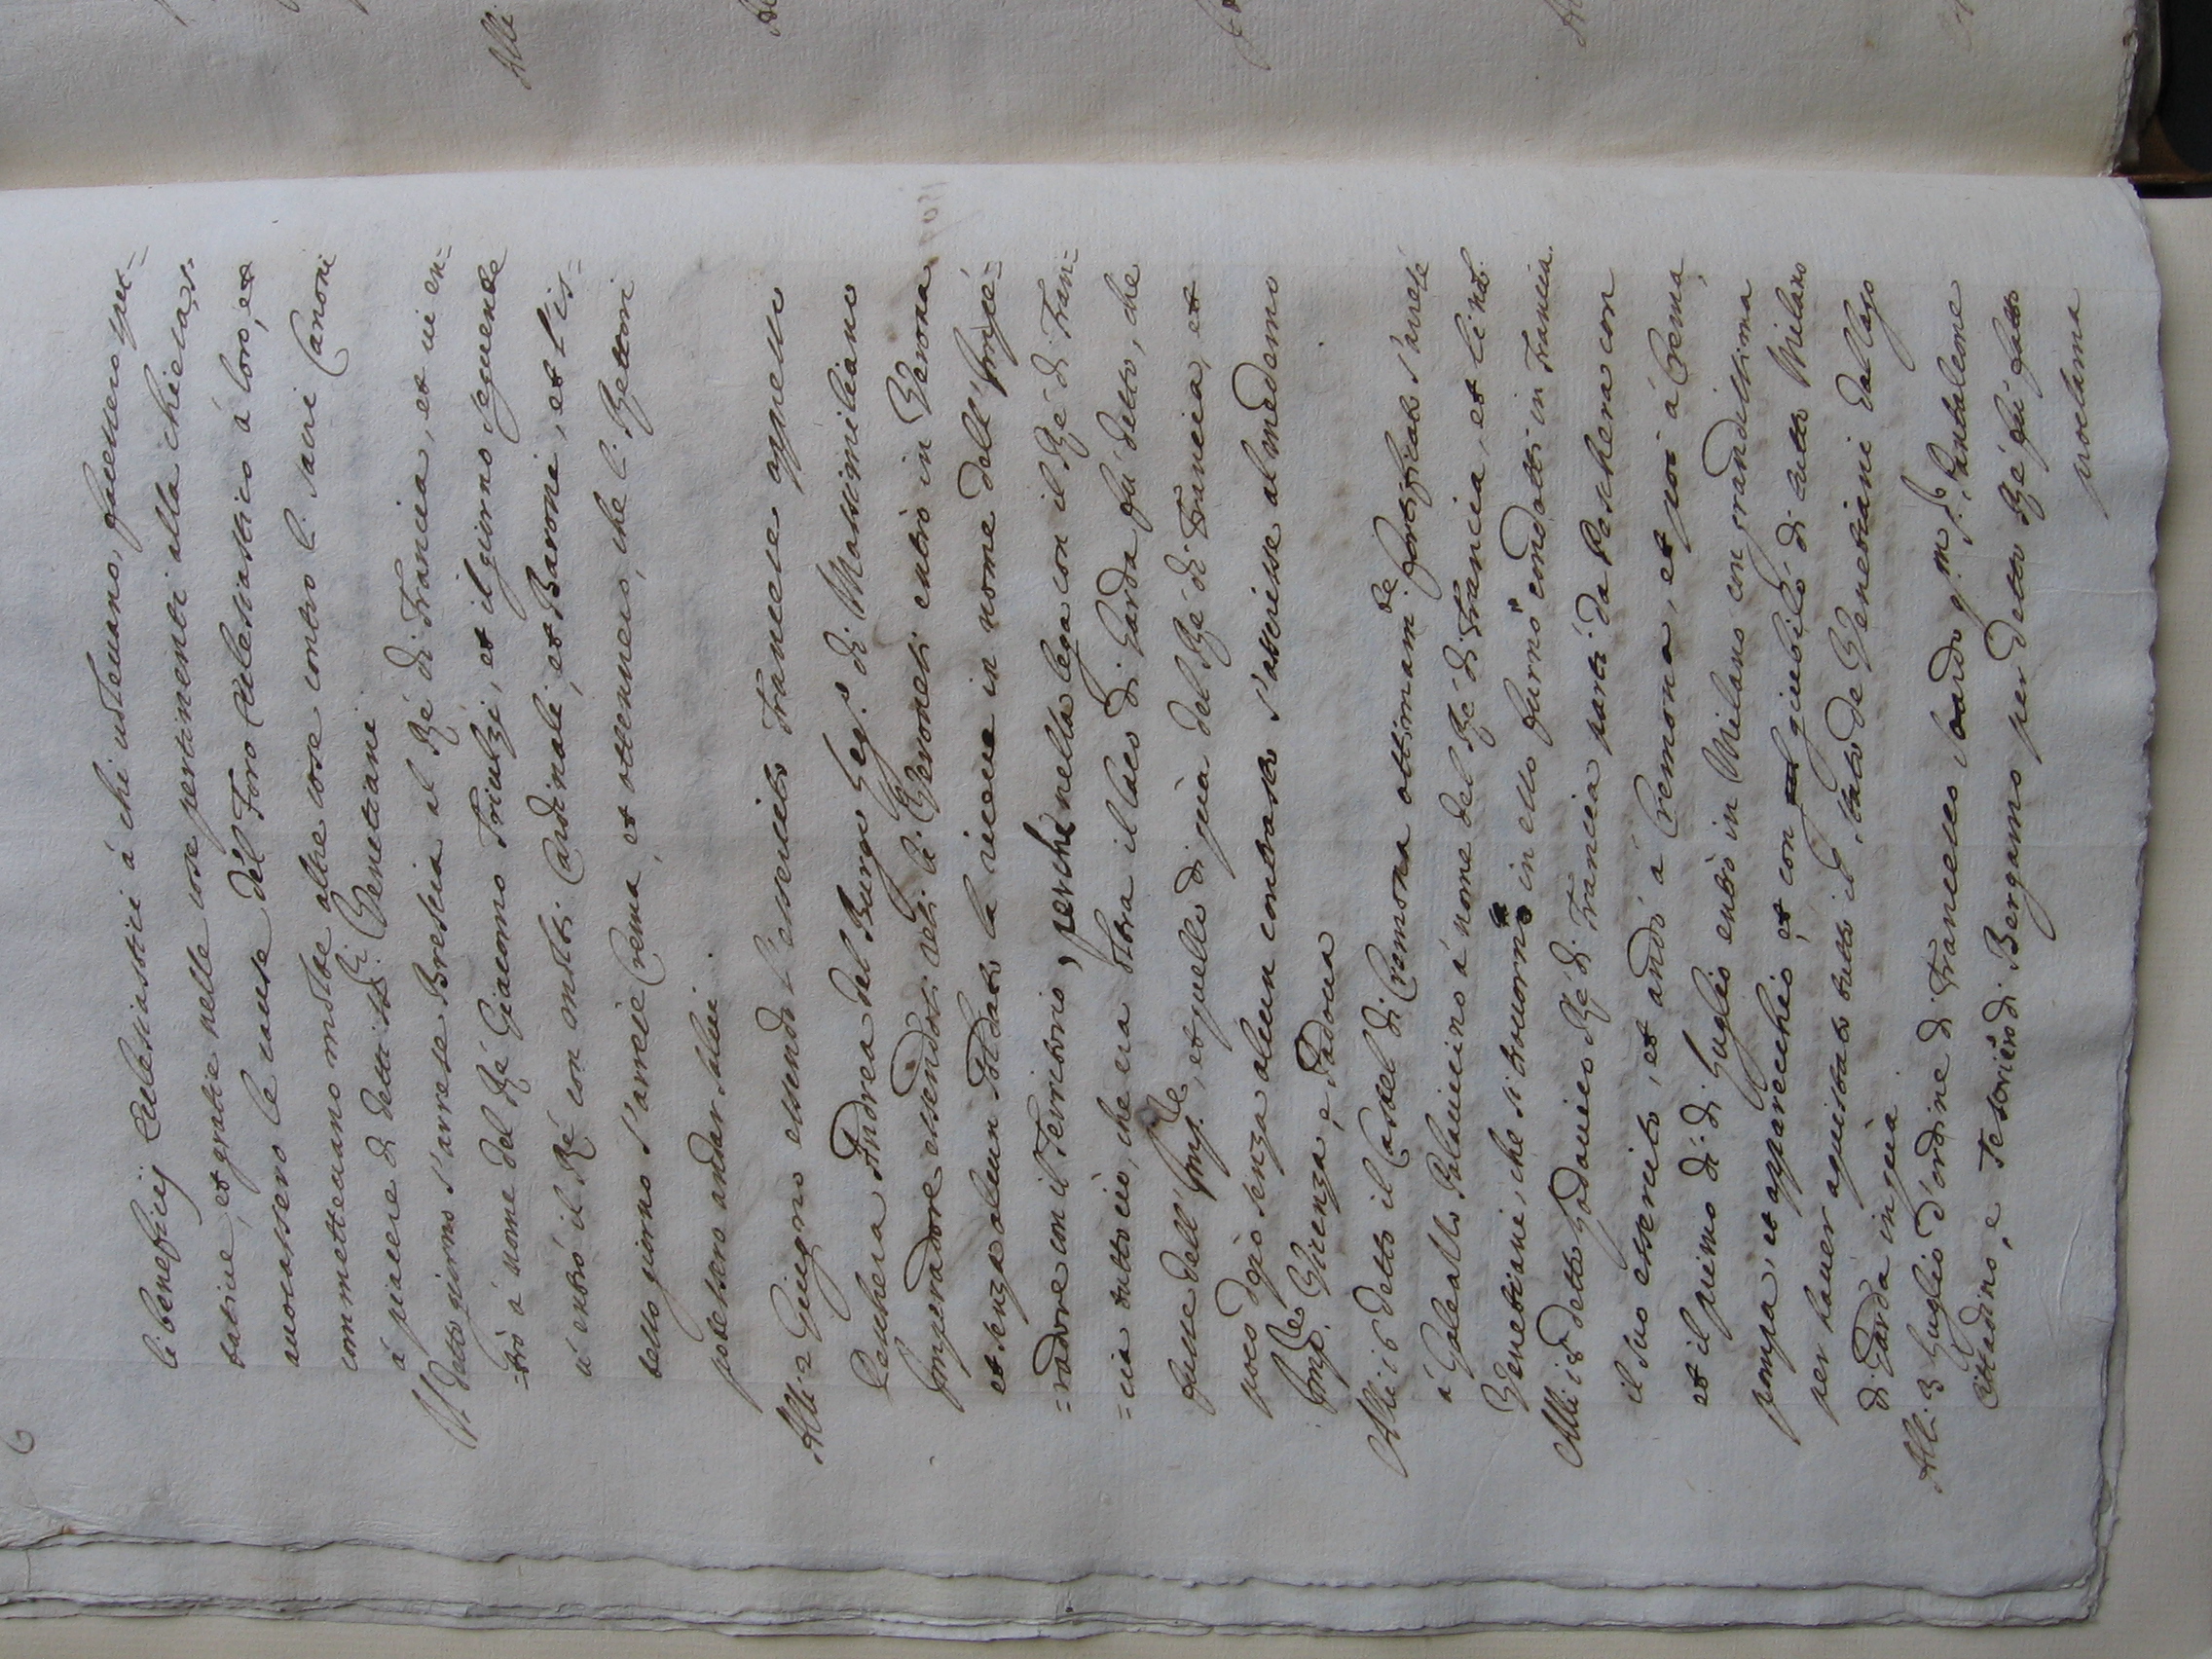 6
li beneficij Eclesiastici à chi voleuano, facessero spet=
tatiue, et gratie nelle cose pertinenti alla chiesa, r
auocassero le cause del Foro Eclesiastico à loro, et
commetteuano molte altre cose contro li sacri Canoni
à piacere di detti ss.ri Venetiani
detto giorno s'arrese Brescia al Rè di Francia, et ui en=
=trò à nome del Rè Giacomo Triulzi, et il giorno seguente
ui entrò il Rè con molti Cardinali, et Baroni, et l'is=
tesso giorno s'arrese Crema, et ottennero, che li Rettori
potessero andar salui.
Alli 2 Giugno essendo l'essercito Francese appresso
Peschera Andrea dal Burgo Leg.o di Massimiliano
Imperadore essendosi resi li Veronesi entrò in Verona
et senza alcun soldato la riceue in nome dell'Impe=
=radore con il Territorio, perche nella lega con il Rè di Fran=
=cia tutto ciò, che era oltra il laco di Garda fù detto, che
fusse dell'Imp.re, et quello di quà del Rè di Francia, et
poco dopò senza alcun contrasto s'arrese al medemo
Imp.re Vicenza, e Padoua
Alli 16 detto il Castel di Cremona ottimam.te fortificato s'arese
à Galeazzo Palauicino à nome del Rè di Francia, et li nob.
Venetiani, che si trouorno in esso furno condotti in Francia.
Alli 18 detto Lodouico Rè di Francia parti da Peschera con
il suo essercito, et andò à Cremona, et poi à Crema,
et il primo dì di Luglio entrò in Milano con grandissima
pompa, et apparecchio, et con giubilo di tutto Milano
per hauer aquistato tutto il stato de Venetiani dal lago
di Garda in quà
Alli 3 Luglio d'ordine di Francesco soardo q.m s.r Pantaleone
Cittadino, e Tesoriero di Bergamo per detto Rè fù fatto
proclama
Alli